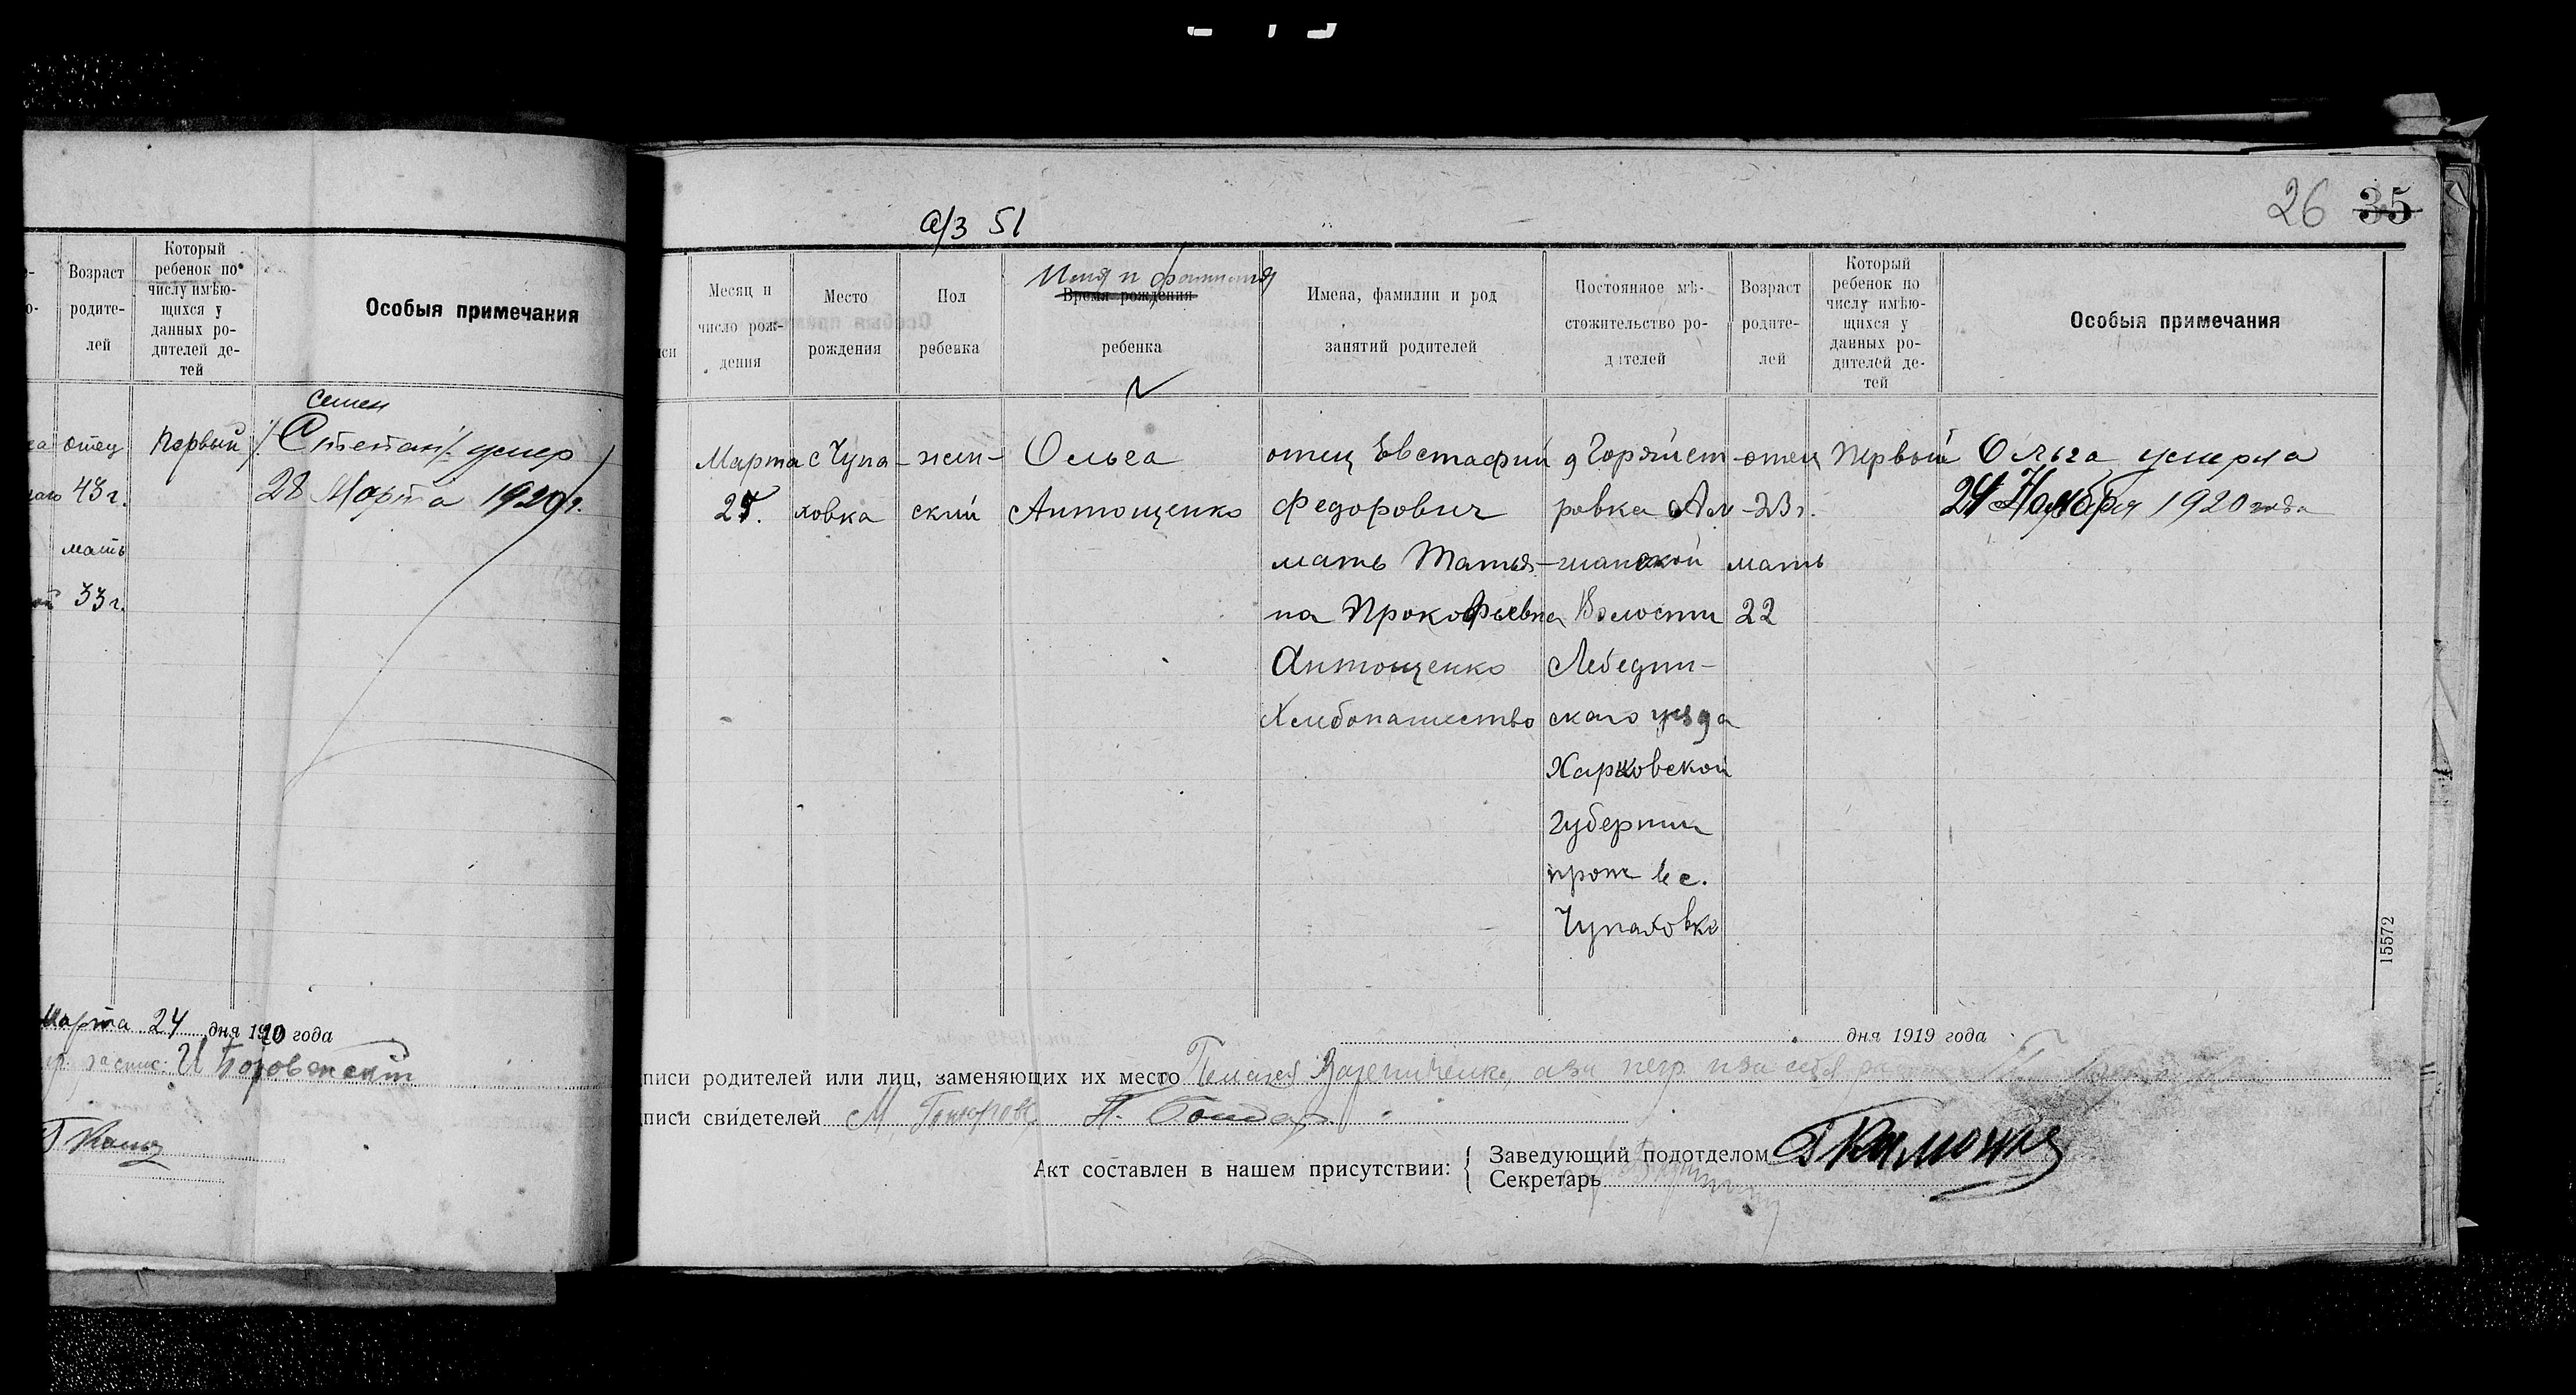 Возраст родите-лей
Который ребенок по числу имѣю-щихся у данных ро-дителей де-тей
Особыя примечания
отец
43 г.
мать
33 г.
Первый
Семен
/. Степан /. умер
28 Марта 1920 г.
Марта 24 дня 1920 года
26 35
а/з 51
Месяц и число рож-дения
Место рождения
Пол ребенка
Имя и фамилия
Время рождения
ребенка
Имена, фамилии и род занятий родителей
Постоянное мѣ-стожительство ро-дителей
Возраст родите-лей
Который ребенок по числу имѣю-щихся у данных ро-дителей де-тей
Особыя примечания
Марта
25.
с Чупа-
ховка
жен-
ский
Ольга
Антощенко
отец Евстафий
Федорович
мать Татья-
на Прокофьевна
Антощенко
Хлебопашество
ровка Ам-
Волости
Лебедин-
скаго уезда
Харковской
Губернии
прож в с.
Чупаховке
отец
23 г.
мать
22
Первый
Ольга умерла
24 Ноября 1920 года
15572
дня 1919 года
писи родителей или лиц, заменяющих их место
писи свидетелей
Акт составлен в нашем присутствии:
Заведующий подотделом
Секретарь